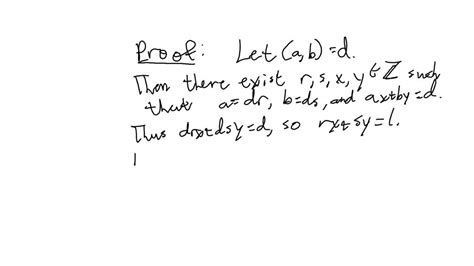 Proof: Let (a, b) = d.
Then there exist r, s, x, y ∈ ℤ such
that a=dr, b=ds, and ax+by=d.
Thus drx+dsy=d, so rx+sy=1.